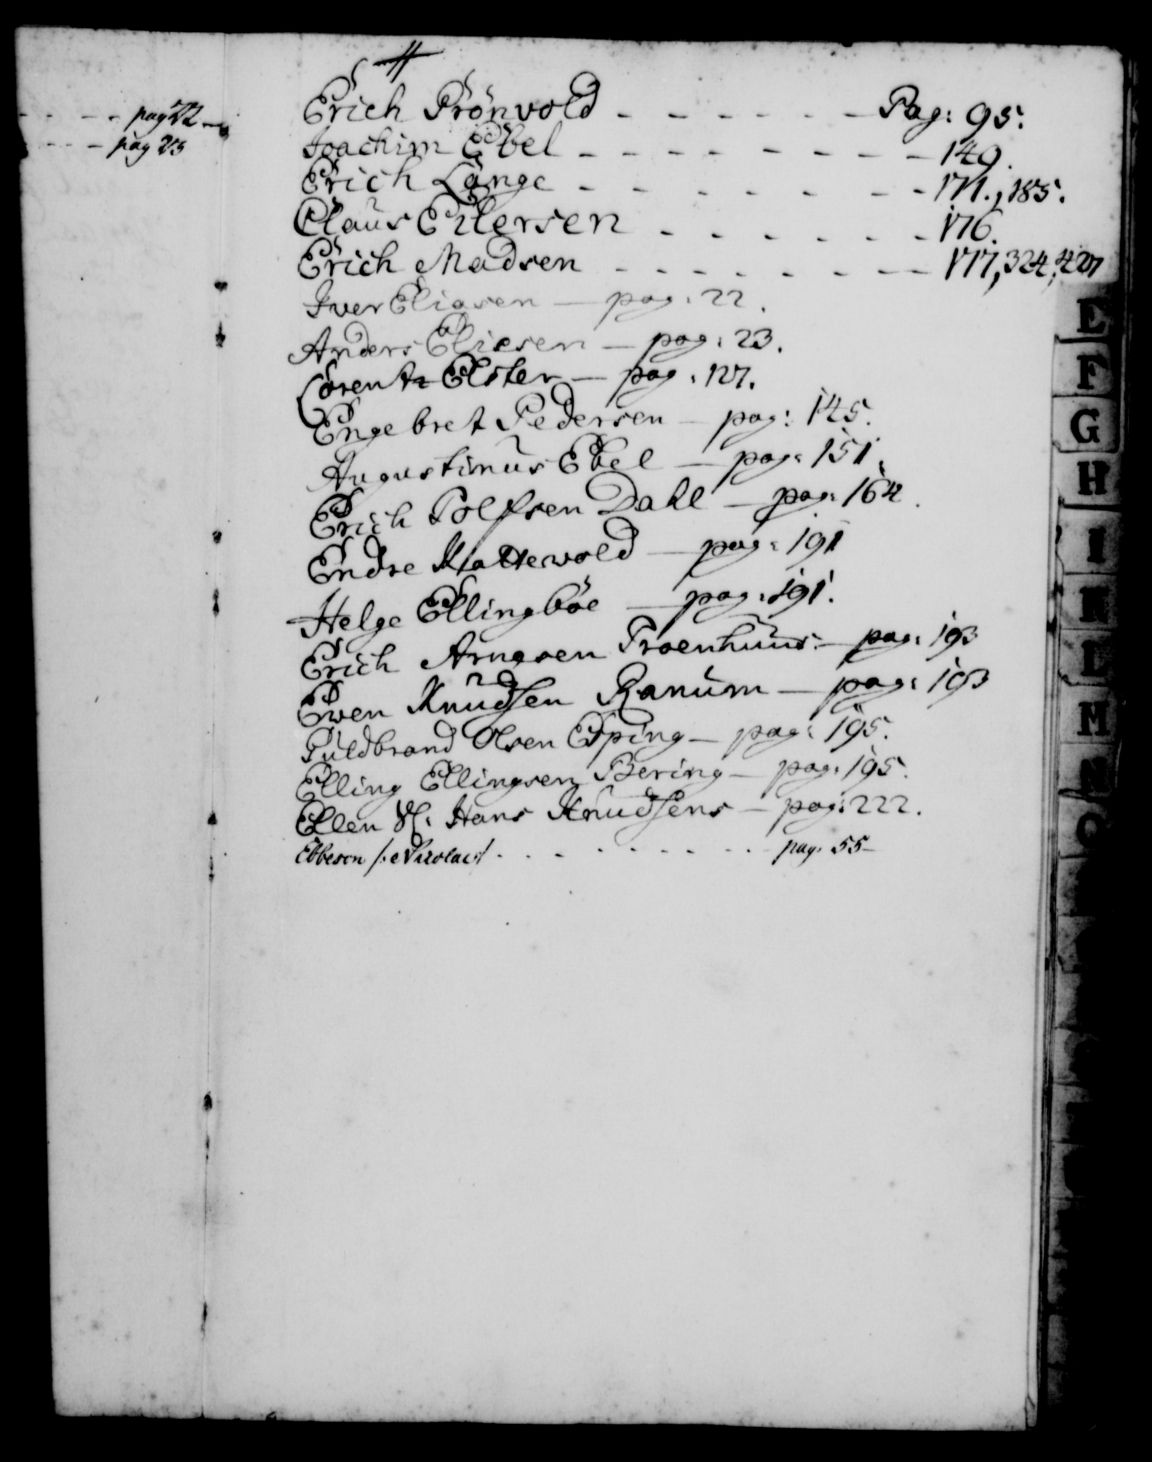 pag 22
pag 23
Erich Grönvold - - - - - - Pag: 95.
Joachim Ebel - - - - - - - - - 149.
Erich Lange - - - - - - - - 171., 185.
Claus Eilersen - - - - - - 176.
Erich Madsen - - - - - - - 177, 324, 427
Iver Eliasen — pag: 22.
Anders Eliesen — pag: 23.
Lorentz Elster — pag: 127.
Engebret Pedersen — pag: 145.
Augustinus Ebel — pag: 151.
Erich Rolfsen Dahl — pag: 164.
Endre Mattevold — pag: 191
Helge Ellingböe — pag: 191.
Erich Arnesen Troenhuus — pag: 193
Even Knudsen Ranum — pag: 193
Guldbrand Olsen Esping — pag: 195.
Elling Ellingsen Bering — pag: 195.
Ellen Sl: Hans Knudsens — pag: 222.
Ebbesen /: Nicolai :/ - - - - - - - - pag: 55-
E
F
G
H
I
K
L
M
N
O